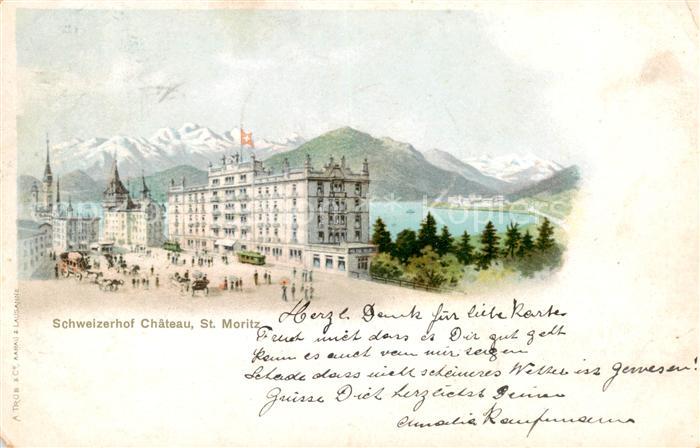 Schweizerhof Château, St. Moritz
Herzl. Dank für liebe Karte
Freut mich dass es Dir gut geht
kann es auch von mir sagen
Schade dass nicht schöneres Wetter ist gewesen!
Grüsse Dich herzlichst Deine
Amalia Kaufmann
A. TRÜB & CIE, AARAU & LAUSANNE